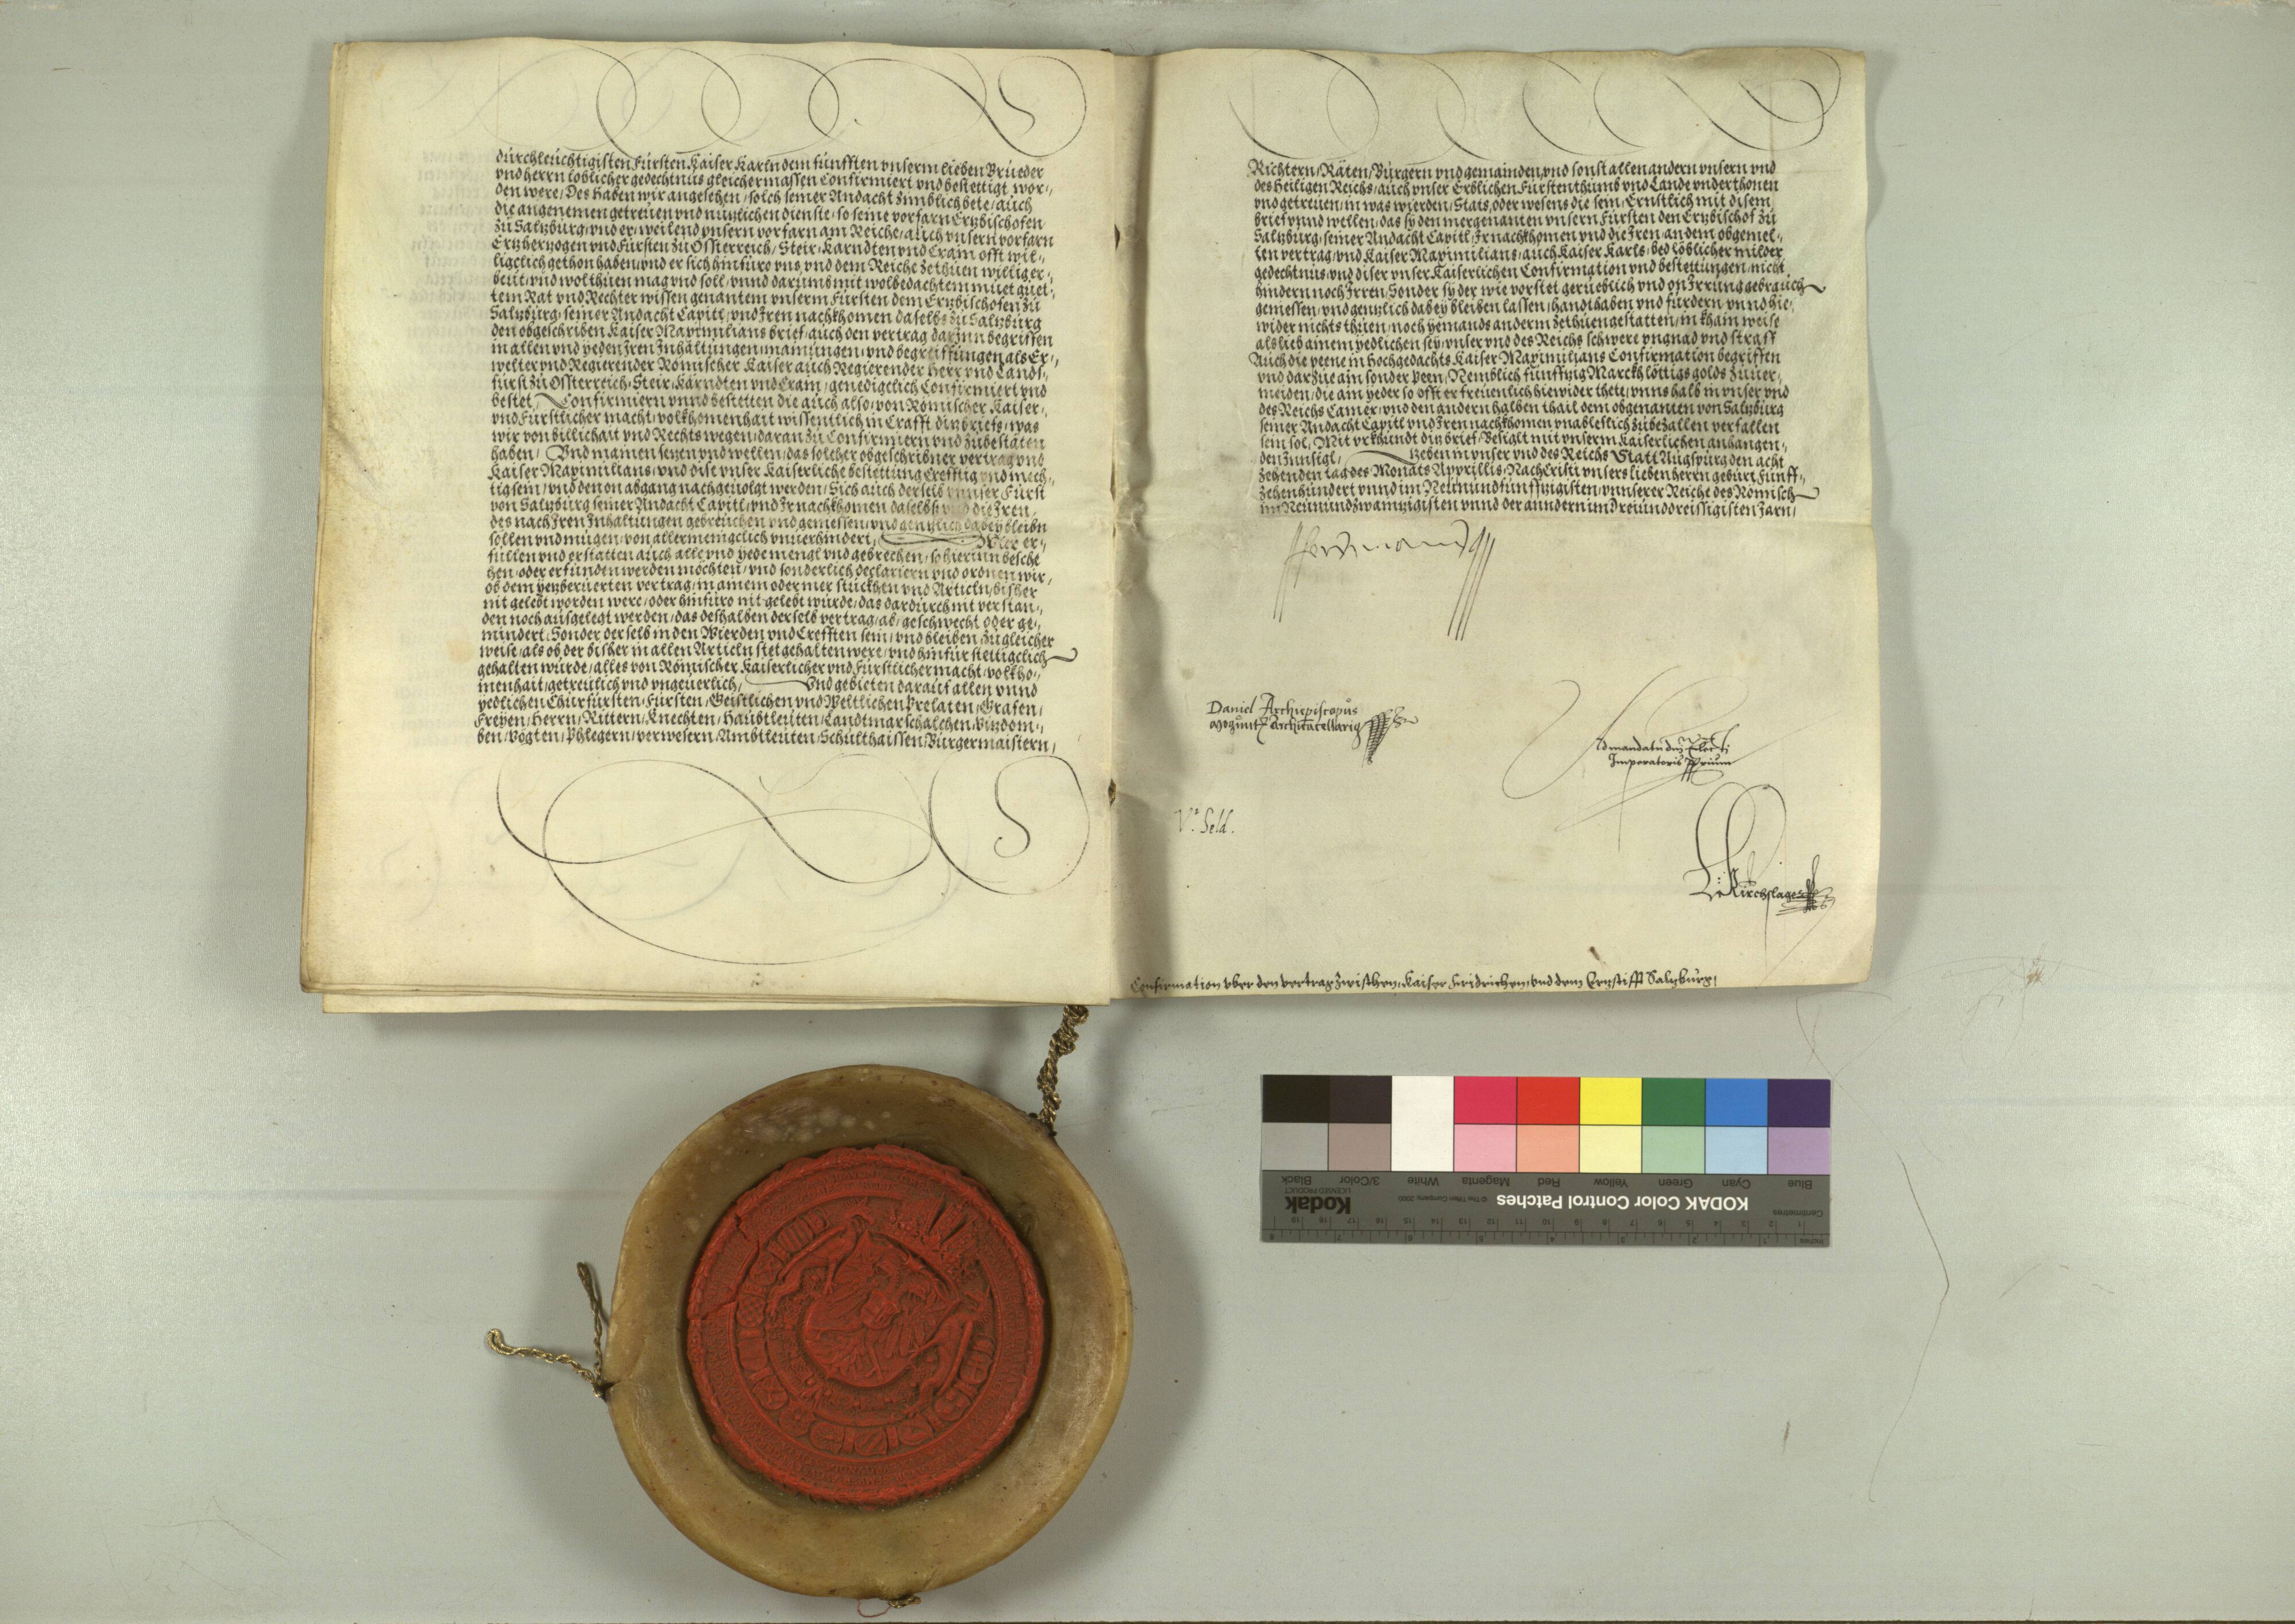 durchleuchtigisten Fürsten Kaiser Karln dem fünfften vnserm lieben Brueder
vnd herrn loblicher gedechtnus gleichermassen Confirmiert vnd bestettigt wor,,
den were, Des haben wir angesehen, solch seiner Andacht zimblich bete, auch
die angenemen getreuen vnd nutzlichen dienste, so seine vorfarn Ertzbischofen
zu Saltzburg, vnd er, weilend vnsern vorfarn am Reiche, auch vnsern vorfarn
Ertzhertzogen vnd Fürsten zu Ossterreich, Steir, Karndten vnd Crain, offt wil,,
ligclich gethon haben, vnd er sich hinfüro vns vnd dem Reiche zethuen williger,,
beut, vnd wol thuen mag vnd soll, vnnd darumb mit wolbedachtem muet guet,,
tem Rat vnd Rechter wissen genantem vnserm Fürsten dem Ertzbischofen zu
Saltzburg, seiner Andacht Capitl, vnd Iren nachkhomen daselbs zu Saltzburg
den obgeschriben Kaiser Maximilians brief, auch den vertrag darynn begriffen
in allen vnd yeden Iren Inhaltungen, mainungen, vnd begreiffungen als Er,,
welter vnd Regierender Römischer Kaiser auch Regierender Herr vnd Lands,,
fürst zu Ossterreich, Steir, Karndten vnd Crain, genedigclich Confirmiert vnd
bestet, Confirmiern vnnd bestetten die auch also, von Römischer Kaiser,,
vnd Fürstlicher macht, volkhomenhait wissentlich in Crafft ditz briefs, was
wir von billichait vnd Rechts wegen, daran zu Confirmiern vnd zubestäten
haben, Vnd mainen setzen vnd wellen, das solcher obgeschribner vertrag vnd
Kaiser Maximilians, vnd dise vnser Kaiserliche bestettung Crefftig vnd mech,,
tig sein, vnd den on abgang nachgeuolgt werden, Sich auch derselb vnnser Fürst
von Saltzburg seiner Andacht Capitl, vnd Ir nachkhomen daselbst vnd die Iren,
des nach Iren Inhaltungen gebreuchen vnd geniessen, vnd gentzlich dabey bleibn
sollen vnd mugen, von allermenigclich vnuerhindert, Wir er,,
füllen vnd erstatten auch alle vnd yede mengl vnd gebrechen, so hierinn besche
hen, oder erfunden werden möchten, vnd sonderlich declariern vnd ordnen wir,
ob dem yetzberüerten vertrag, in ainem oder mer stuckhen vnd Articln, bisher
nit gelebt worden were, oder hinfüro nit gelebt wurde, das dardurch nit verstan,,
den noch ausgelegt werden, das deshalben derselb vertrag, ab, geschwecht oder ge,,
mindert, Sonder derselb in den Wierden vnd Crefften sein, vnd bleiben, zu gleicher
weise, als ob der bisher in allen Articln stet gehalten were, vnd hinfür stettigclich
gehalten wurde, alles von Römischer Kaiserlicher vnd Fürstlicher macht, volkho,,
menhait, getreulich vnd vngeuerlich, Vnd gebieten darauf allen vnnd
yedlichen Churfürsten, Fürsten, Geistlichen vnd Weltlichen Prelaten, Grafen,
Freyen, Herrn, Rittern, Knechten, Haubtleuten, Landtmarschalchen, Vitzdom,,
ben, Vögten, Phlegern, verwesern, Ambtleuten, Schulthaissen, Burgermaistern,
Richtern, Räten, Burgern vnd gemainden, vnd sonst allen andern vnsern vnd
des Heiligen Reichs, auch vnser Erblichen Fürstenthumb vnd Lande vnderthonen
vnd getreuen, in was wierden, Stats, oder wesens die sein, Ernstlich mit disem
brief vnnd wellen, das sy den mergenanten vnsern Fürsten den Ertzbischof zu
Saltzburg, seiner Andacht Capitl, Ir nachkhomen vnd die Iren, an dem obgemel,,
ten vertrag, vnd Kaiser Maximilians, auch Kaiser Karls, bed löblicher milder
gedechtnus, vnd diser vnser Kaiserlichen Confirmation vnd bestettungen, nicht
hindern noch Irren, Sonder sy der wie vorstet gerueblich vnd on Irrung gebrauch
geniessen, vnd gentzlich dabey bleiben lassen, handthaben vnd fürdern, vnnd hie,,
wider nichts thuen, noch yemands anderm zethuen gestatten, in kham weise
als lieb ainem yedlichen sey, vnser vnd des Reichs schwere vngnad vnd straff
Auch die peene in hochgedachts Kaiser Maximilians Confirmation begriffen
vnd darzue ain sonder Peen, Nemblich fünfftzig Marckh löttigs golds zuuer,,
meiden, die ain yeder so offt er freuenlich hiewider thete, vnns halb in vnser vnd
des Reichs Camer, vnd den andern halben thail dem obgenanten von Saltzburg
seiner Andacht Capitl vnd Iren nachkhomen vnableslich zubezallen verfallen
sein sol, Mit vrkhundt ditz brief, Besiglt mit vnserm Kaiserlichen anhangen,,
den Innsigl, Geben in vnser vnd des Reichs Statt Augspurg den acht
zehenden tag des Monats Apprillis, Nach Cristi vnsers lieben herrn geburt Fünff,,
zehenhundert vnnd im Neunundfünfftzigisten, vnnserer Reiche des Römisch
im Neunundzwaintzigisten vnnd der anndern im Dreiunddreissigisten Jarn,
Ferdinand
Daniel Archiepiscopus
Mogunt Archicancellarius
Ad mandatu dni Electi
Imperatoris pprium
Vt Seld.
L Kirchslager
Confirmation vber den vertrag zwischen, Kaiser Fridrichen, vnd dem Ertzstifft Saltzburg,
Blue
Cyan
Green
Yellow
Red
Magenta
White
3/Color
Black
KODAK Color Control Patches
© The Tiffen Company, 2000
Kodak
LICENSED PRODUCT
Centimetres
Inches